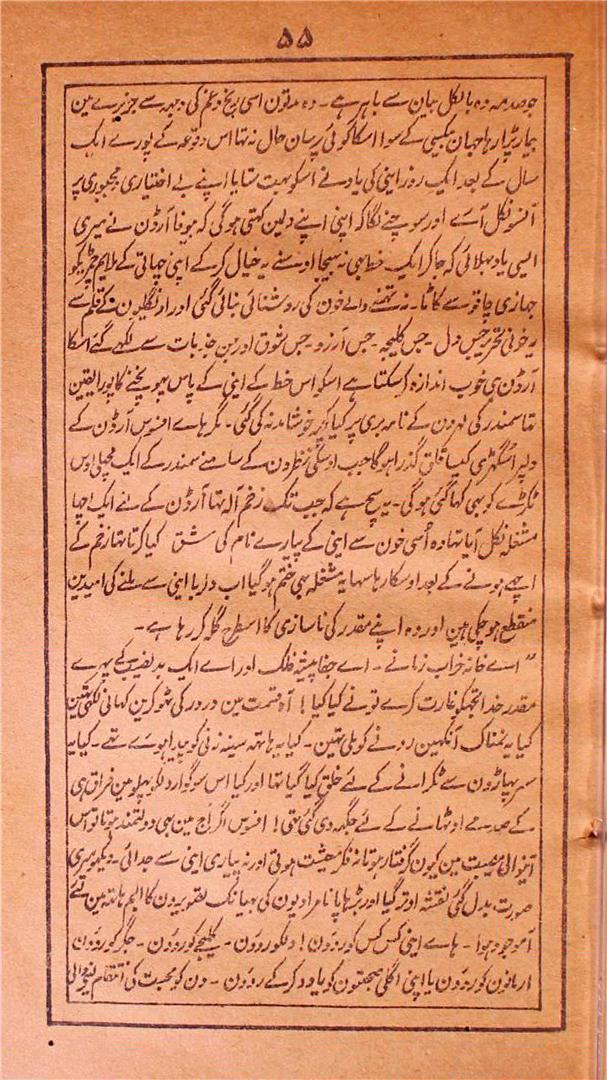 ۵۵
جو صدمہ وہ بالکل بیان سے باہر ہے۔ وہ مدتون اسی رنج و غم کی وجہ سے جزیرے مین
بیمار پڑا رہا جہان بیکسی کے سوا اسکا کوئی پرسان حال نہ تہا اس وقوعہ کے پورے ایک
سال کے بعد ایک روز اینی کی یاد نے اسکو بہت ستایا اپنے بے اختیاری و مجبوری پر
آنسو نکل آے اور سوچنے لگا کہ اینی اپنے دلین کہتی ہوگی کہ بیوفا آرڈن نے میری
ایسی یاد بہلائی کہ جاکر ایک خط بہی نہ بہیجا اوسنے یہ خیال کرکے اپنی چہاتی کے ملایم چمڑیکو
جہازی چاقو سے کاٹا۔ نہ تہمنے والے خون کی روشنائی بنائی گئی اور انگلیون کے قلم سے
یہ خونی تحریر جس دل۔ جس کلیجہ۔ جس آرزو۔ جس شوق اور جن جذبات سے لکہے گئے اسکا
آرڈن ہی خوب اندازہ کرسکتا ہے اسکو اس خط کے اینی کے پاس پہونچنے کا پورا یقین
تہا سمندر کی لہرون کے نامہ بری پر کیا کچہ خوشامد نہ کی گئی۔ مگر ہاے افسوس آرڈن کے
دلپر اسگہڑی کیسا قلق گذرا ہوگا جب اوسکی نظرون کے سامنے سمندر کے ایک مچہلی اوس
ٹکڑے کو بہی کہا گئی ہوگی۔ یہ سچ ہے کہ جب تک زخم آلہ تہا آرڈن کے لئے ایک اچہا
مشغلہ نکل آیا تہا وہ اُسی خون سے اینی کے پیارے نام کی مشق کیا کرتا تہا زخم کے
اچہے ہونے کے بعد اوسکا رہا سہا یہ مشغلہ بہی ختم ہوگیا اب دلربا اینی سے ملنے کی امیدین
منقطع ہوچکی ہین اور وہ اپنے مقدر کی ناسازی کا اسطرح گلہ کر رہا ہے۔
"اے خانہ خراب زمانے۔ اے جفا پیشہ فلک اور اے ایک بدنصیب کے پہرے
مقدر خدا تجہکو غارت کرے تونے کیا کیا! آہ قسمت مین در در کی ٹہوکرین کہانی لکہی تہین
کیا یہ نمناک آنکہین رونے کو ملی تہین۔ کیا یہ ہاتہہ سینہ زنی کو پیدا ہوے تہے۔ کیا یہ
سر پہاڑون سے ٹکرانے کے لئے خلق کیا گیا تہا اور کیا اس سوگوار دلکو پہلو مین فراق ہی
کے صدمے اوٹہانے کے لئے جگہہ دی گئی تہی! افسوس اگر آج مین بہی دولتمند ہوتا تو اس
آنیوالی مصیبت مین کیون گرفتار ہوتا نہ فکر معیشت ہوتی اور نہ پیاری اینی سے جدائی۔ دیکہو میری
صورت بدل گئی نقشہ اوتر گیا اور بڑہاپا نامرادیون کی بہیانک تصویرون کا البم ہاتہہ مین لئے
آموجود ہوا۔ ہاے اپنی کس کس کو روؤن! دلکو روؤن۔ کلیجے کو روؤن۔ جگر کو روؤن
ارمانون کو روؤن یا اپنی اگلی صحبتون کو یاد کرکے روؤن۔ دن کو محبت کی انتقام لینیوالی